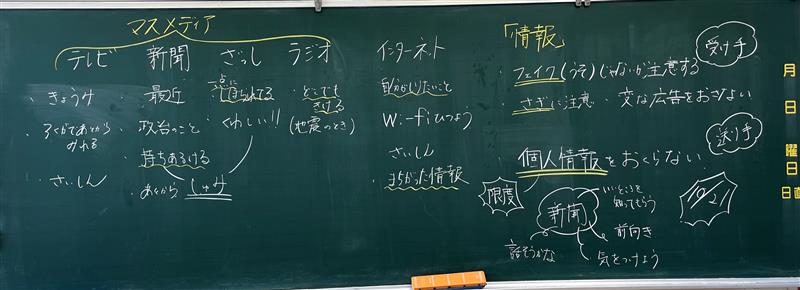 マスメディア
テレビ
・きょうみ
・ろくがであとから
みれる
・さいしん
新聞
・最近
・政治のこと
・持ちあるける
・あとから
ざっし
・一点に
しぼられてる
くわしい!!
しゅみ
ラジオ
・どこでも
きける
(地震のとき)
インターネット
自分がしりたいこと
Wi-fiひつよう
さいしん
まちがった情報
「情報」
受け手
・フェイク(うそ)じゃないか注意する
・さぎに注意・変な広告をおさない
送り手
・個人情報をおくらない
限度
新聞
いいところを
知ってもらう
前向き
気をつけよう
話そうかな
10/21
月
日
曜
日
日直